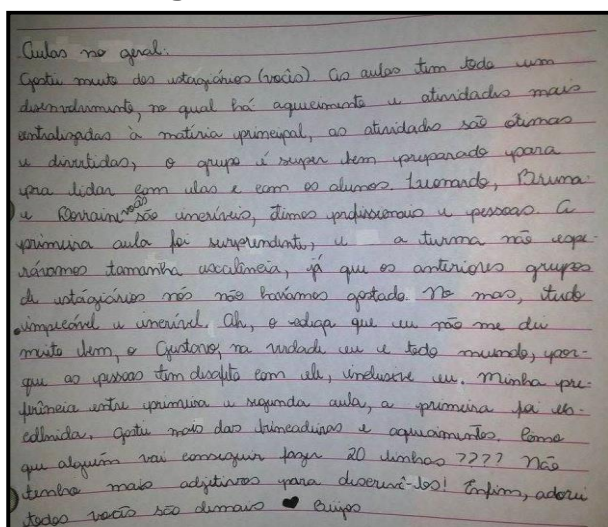 Aulas no geral:
Gostei muito dos estagiários (vocês). As aulas tem todo um
desenvolvimento, no qual há aquecimento e atividades mais
centralizadas à matéria principal, as atividades são ótimas
e divertidas, o grupo é super bem preparado para
pra lidar com elas e com os alunos. Leonardo, Bruna
e Lorraine vocês são incríveis, ótimos profissionais e pessoas. A
primeira aula foi surpreendente, e a turma não espe-
rávamos tamanha excelência, já que os anteriores grupos
de estágiários nós não havíamos gostado. No mas, tudo
impecável e incrível. Ah, o que eu não me dei
muito bem, o Gustavo, na verdade eu e todo mundo, por-
que as pessoas tem desafeto com ele, inclusive eu. Minha pre-
ferência entre primeira e segunda aula, a primeira foi es-
colhida, gostei mais das brincadeiras e aquecimentos. Como
que alguém vai conseguir fazer 20 linhas ???? Não
tenho mais adjetivos para descrevê-los! Enfim, adorei
todos vocês são demais ♥ Beijos